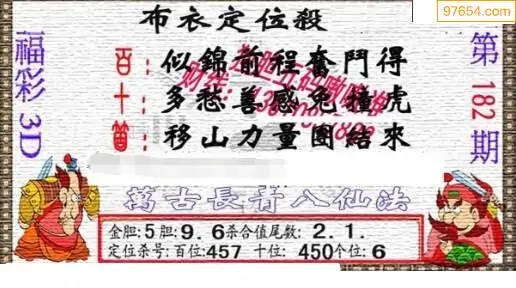 97654.com
布衣定位殺
福彩3D
第182期
百:似錦前程奮鬥得
十:多愁善感免撞虎
個:移山力量團結來
萬古長青八仙法
金胆:5胆:9.6杀合值尾数:2.1.
定位杀号:百位:457 十位:450个位:6